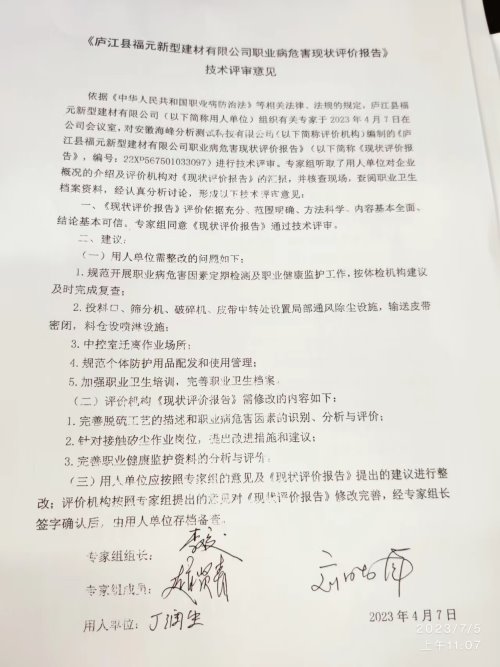 《庐江县福元新型建材有限公司职业病危害现状评价报告》
技术评审意见
依据《中华人民共和国职业病防治法》等相关法律、法规的规定，庐江县福
元新型建材有限公司（以下简称用人单位）组织有关专家于 2023 年 4 月 7 日在
公司会议室，对安徽海峰分析测试科技有限公司（以下简称评价机构）编制的《庐
江县福元新型建材有限公司职业病危害现状评价报告》（以下简称《现状评价报
告》，编号：22XP567501033097）进行技术评审。专家组听取了用人单位对企业
概况的介绍及评价机构对《现状评价报告》的汇报，并核查现场，查阅职业卫生
档案资料，经认真分析讨论，形成以下技术评审意见：
一、《现状评价报告》评价依据充分、范围明确、方法科学、内容基本全面、
结论基本可信。专家组同意《现状评价报告》通过技术评审。
二、建议：
（一）用人单位需整改的问题如下；
1.规范开展职业病危害因素定期检测及职业健康监护工作，按体检机构建议
及时完成复查；
2.投料口、筛分机、破碎机、皮带中转处设置局部通风除尘设施，输送皮带
密闭，料仓设喷淋设施；
3.中控室迁离作业场所；
4.规范个体防护用品配发和使用管理；
5.加强职业卫生培训，完善职业卫生档案。
（二）评价机构《现状评价报告》需修改的内容如下：
1.完善脱硫工艺的描述和职业病危害因素的识别、分析与评价；
2.针对接触矽尘作业岗位，提出改进措施和建议；
3.完善职业健康监护资料的分析与评价。
（三）用人单位应按照专家组的意见及《现状评价报告》提出的建议进行整
改；评价机构按照专家组提出的意见对《现状评价报告》修改完善，经专家组长
签字确认后，由用人单位存档备查。
专家组组长：
专家组成员：
用人单位：丁润生
2023 年 4 月 7 日
2023/7/5
上午 11:07